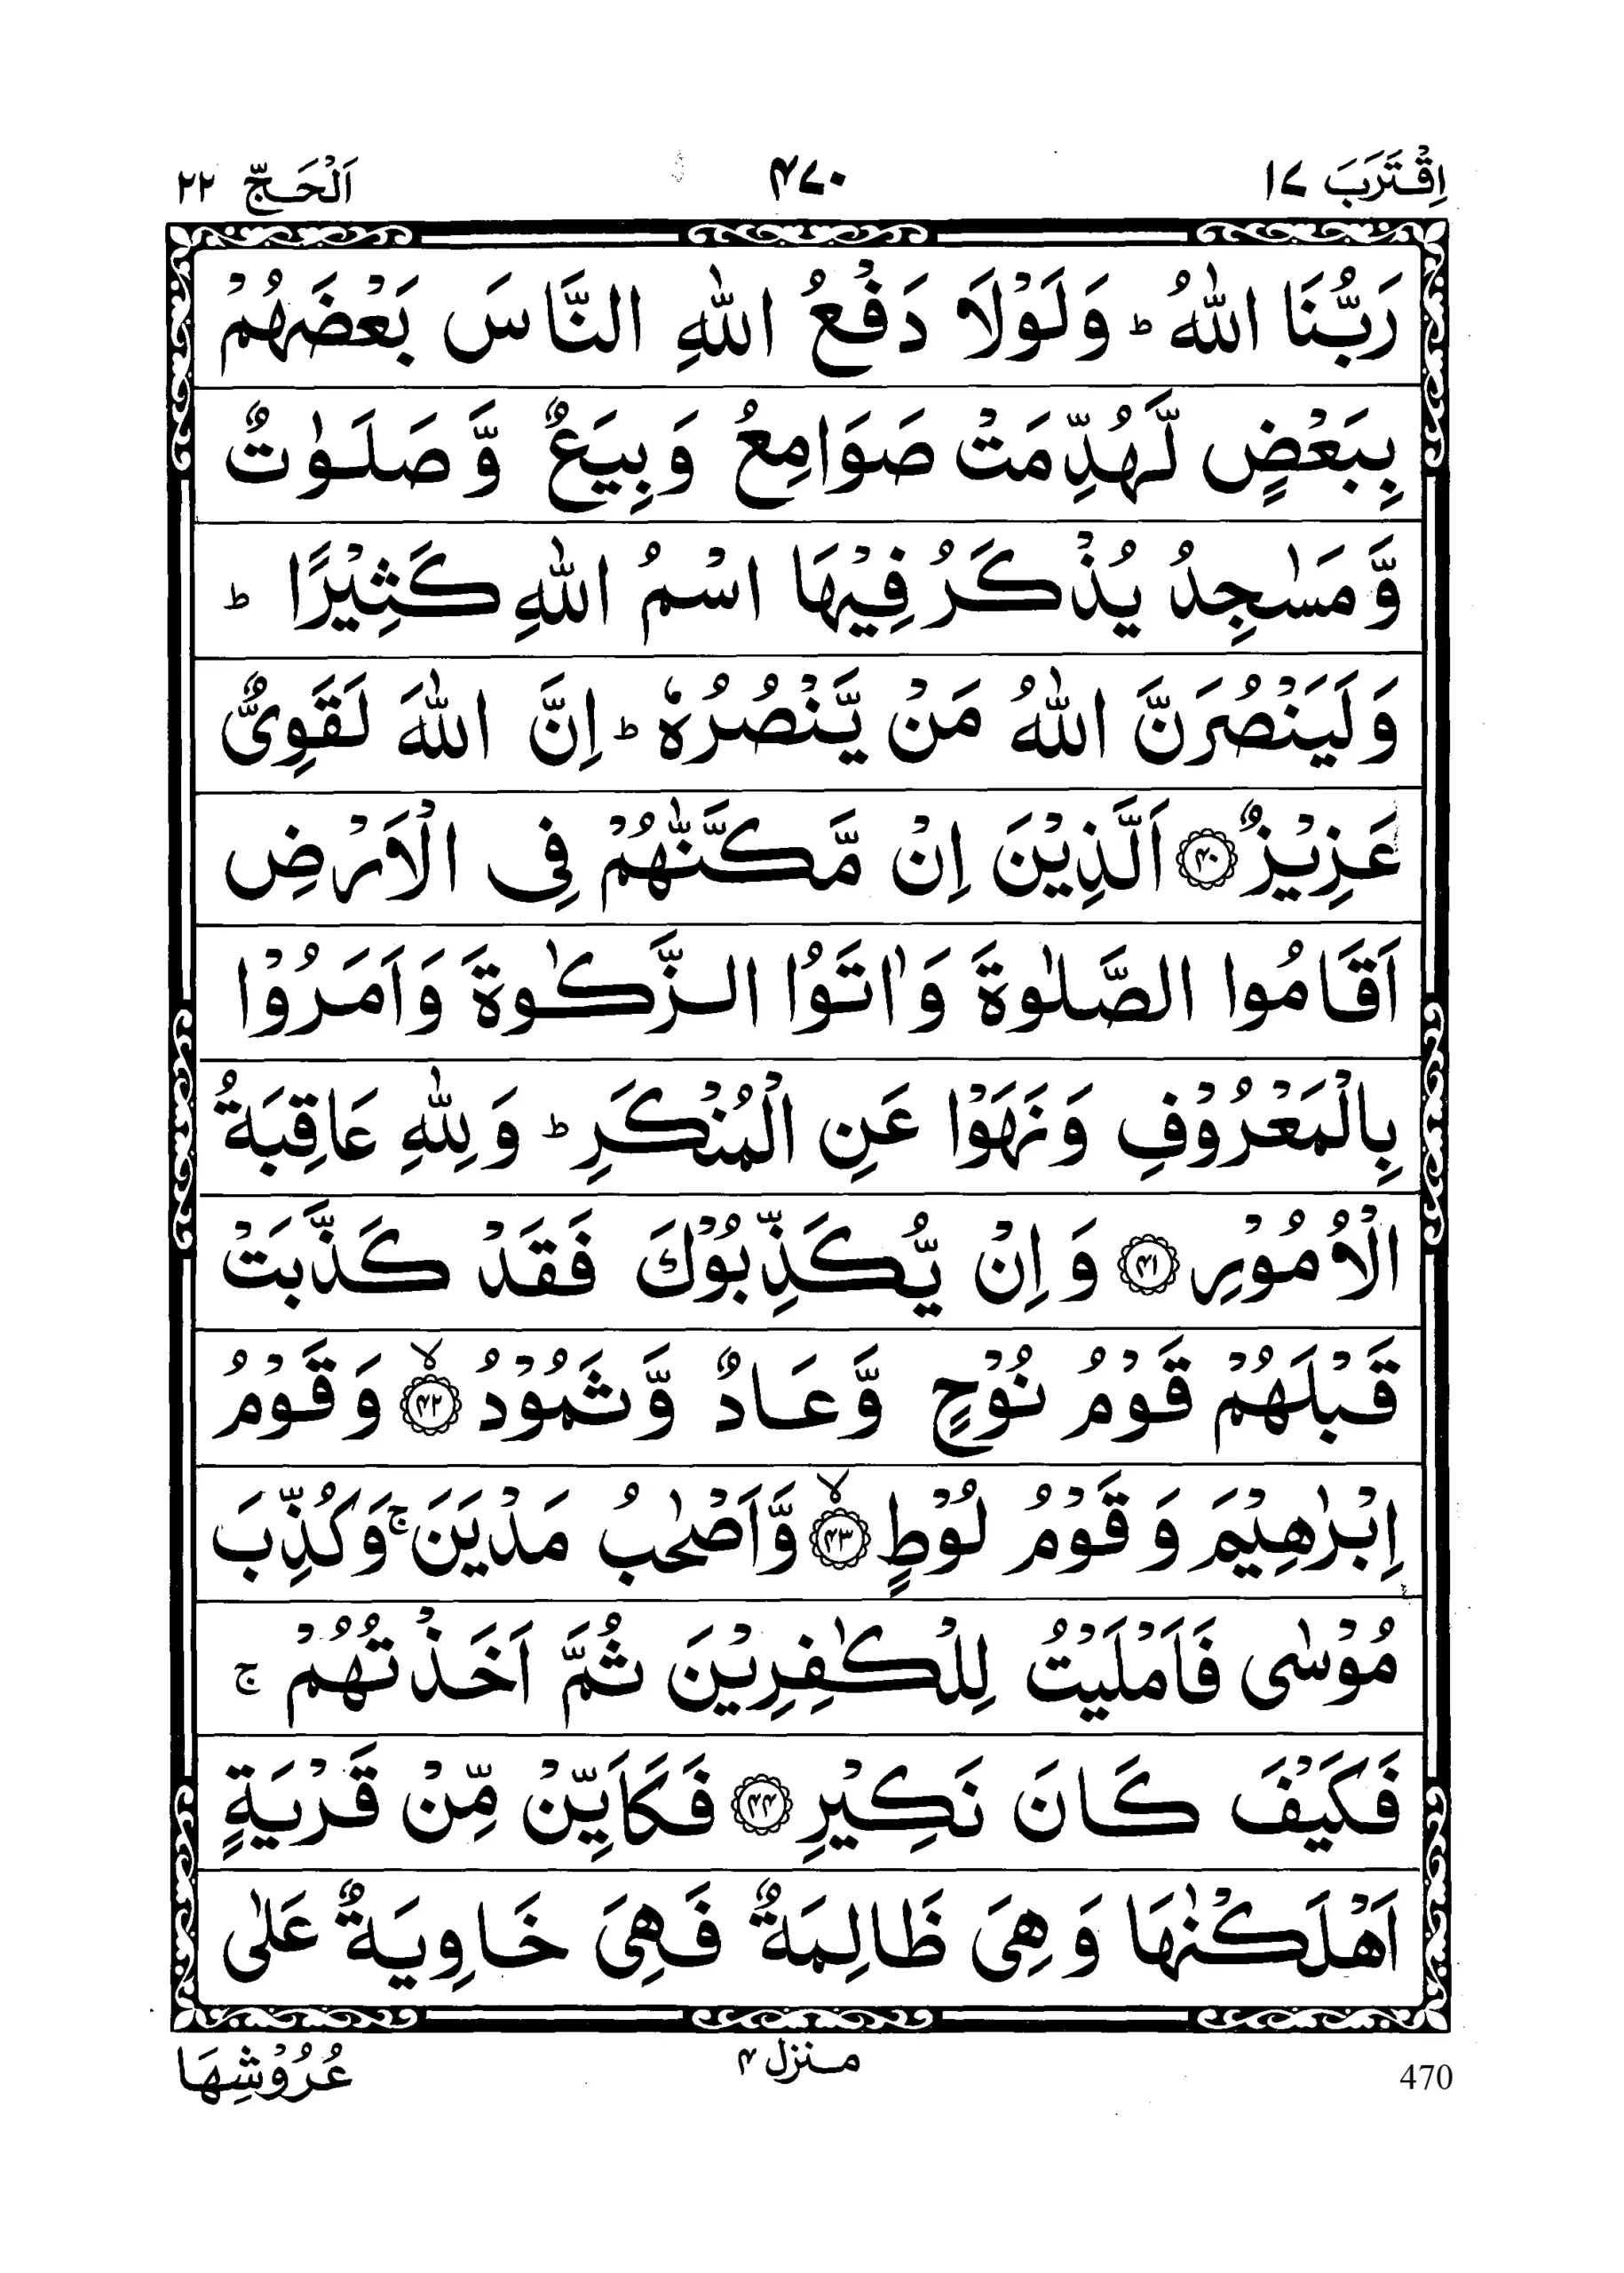 اِقْتَرَبَ ١٧ ٤٧٠ اَلْحَجّ ٢٢
رَبُّنَا اللّٰهُ ؕ وَلَوْلَا دَفْعُ اللّٰهِ النَّاسَ بَعْضَهُمْ
بِبَعْضٍ لَّهُدِّمَتْ صَوَامِعُ وَبِيَعٌ وَّصَلَوٰتٌ
وَّمَسٰجِدُ يُذْكَرُ فِيْهَا اسْمُ اللّٰهِ كَثِيْرًا ؕ
وَلَيَنْصُرَنَّ اللّٰهُ مَنْ يَّنْصُرُهٗ ؕ اِنَّ اللّٰهَ لَقَوِىٌّ
عَزِيْزٌ ﴿٤٠﴾ اَلَّذِيْنَ اِنْ مَّكَّنّٰهُمْ فِى الْاَرْضِ
اَقَامُوا الصَّلٰوةَ وَاٰتَوُا الزَّكٰوةَ وَاَمَرُوْا
بِالْمَعْرُوْفِ وَنَهَوْا عَنِ الْمُنْكَرِ ؕ وَلِلّٰهِ عَاقِبَةُ
الْاُمُوْرِ ﴿٤١﴾ وَاِنْ يُّكَذِّبُوْكَ فَقَدْ كَذَّبَتْ
قَبْلَهُمْ قَوْمُ نُوْحٍ وَّعَادٌ وَّثَمُوْدُ ﴿٤٢﴾ۙ وَقَوْمُ
اِبْرٰهِيْمَ وَقَوْمُ لُوْطٍ ﴿٤٣﴾ۙ وَّاَصْحٰبُ مَدْيَنَ ۚ وَكُذِّبَ
مُوْسٰى فَاَمْلَيْتُ لِلْكٰفِرِيْنَ ثُمَّ اَخَذْتُهُمْ ۚ
فَكَيْفَ كَانَ نَكِيْرِ ﴿٤٤﴾ فَكَاَيِّنْ مِّنْ قَرْيَةٍ
اَهْلَكْنٰهَا وَهِىَ ظَالِمَةٌ فَهِىَ خَاوِيَةٌ عَلٰى
منزل ٤ عُرُوْشِهَا
470